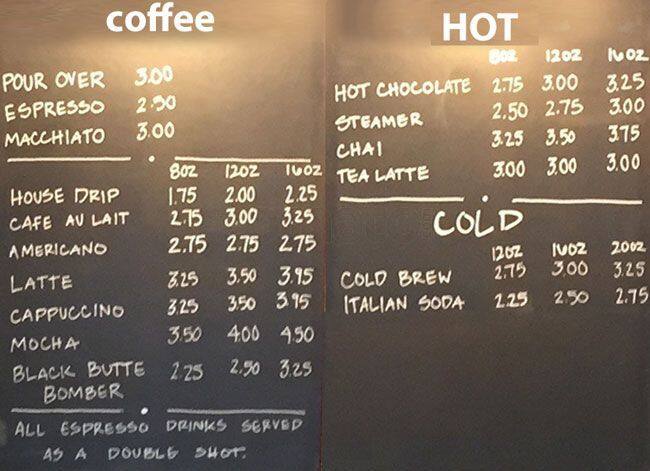 coffee
POUR OVER 3.00
ESPRESSO 2.50
MACCHIATO 3.00
8OZ 12OZ 16OZ
HOUSE DRIP 1.75 2.00 2.25
CAFE AU LAIT 2.75 3.00 3.25
AMERICANO 2.75 2.75 2.75
LATTE 3.25 3.50 3.95
CAPPUCCINO 3.25 3.50 3.95
MOCHA 3.50 4.00 4.50
BLACK BUTTE 2.25 2.50 3.25
BOMBER
ALL ESPRESSO DRINKS SERVED
AS A DOUBLE SHOT.
HOT
8OZ 12OZ 16OZ
HOT CHOCOLATE 2.75 3.00 3.25
STEAMER 2.50 2.75 3.00
CHAI 3.25 3.50 3.75
TEA LATTE 3.00 3.00 3.00
COLD
12OZ 16OZ 20OZ
COLD BREW 2.75 3.00 3.25
ITALIAN SODA 2.25 2.50 2.75